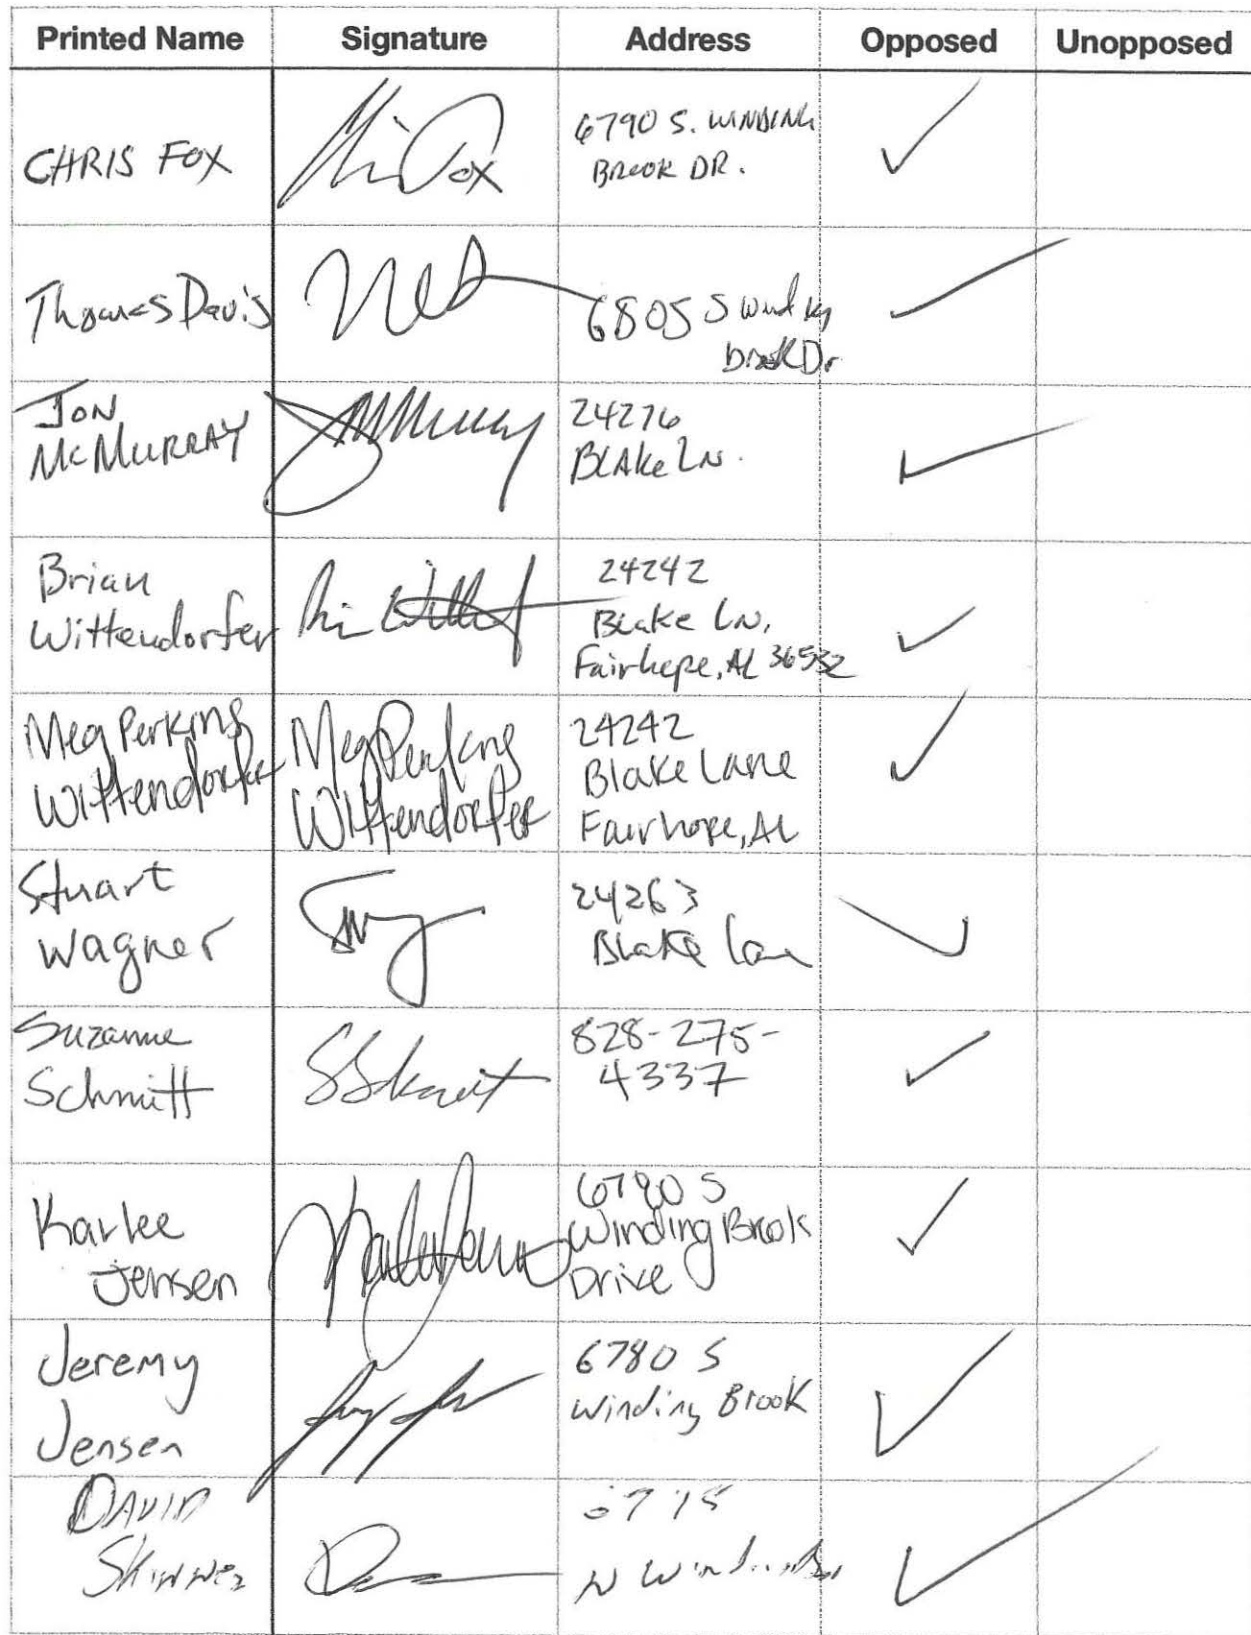 Printed Name Signature Address Opposed Unopposed
CHRIS FOX
6790 S. WINDING
BROOK DR.
Thomas Davis
6805 S Winding
brook Dr
JON
McMURRAY
24276
BLAKE LN.
Brian
Wittendorfer
24242
Blake LN,
Fairhope, AL 36532
Meg Perkins
Wittendorfer
Meg Perkins
Wittendorfer
24242
Blake Lane
Fairhope, AL
Stuart
Wagner
24263
Blake Lane
Suzanne
Schmitt
828-275-
4337
Karlee
Jensen
6780 S
Winding Brook
Drive
Jeremy
Jensen
6780 S
Winding Brook
DAVID
Skinner